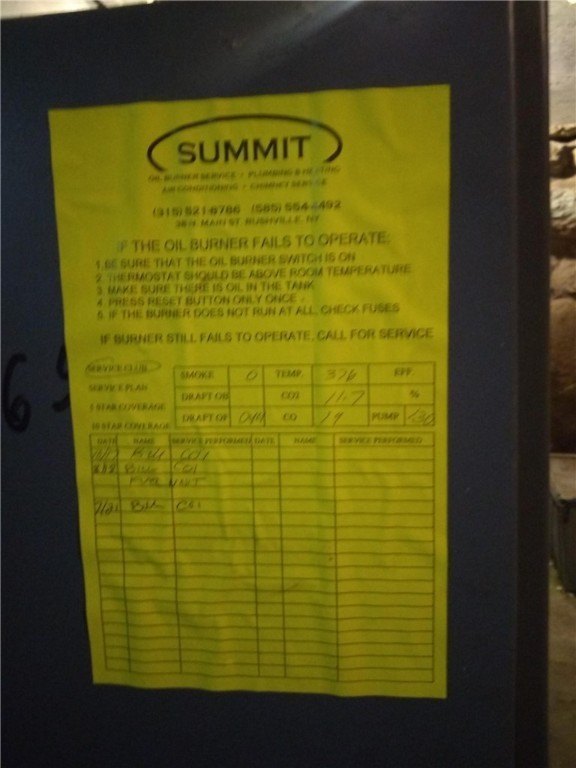 SUMMIT
OIL BURNER SERVICE • PLUMBING & HEATING
AIR CONDITIONING • CHIMNEY SERVICE
(315) 521-8786 (585) 554-4492
38 N. MAIN ST. RUSHVILLE, NY
IF THE OIL BURNER FAILS TO OPERATE:
1. BE SURE THAT THE OIL BURNER SWITCH IS ON
2. THERMOSTAT SHOULD BE ABOVE ROOM TEMPERATURE
3. MAKE SURE THERE IS OIL IN THE TANK
4. PRESS RESET BUTTON ONLY ONCE
5. IF THE BURNER DOES NOT RUN AT ALL, CHECK FUSES
IF BURNER STILL FAILS TO OPERATE, CALL FOR SERVICE
SERVICE CLUB
SERVICE PLAN
5 STAR COVERAGE
10 STAR COVERAGE
SMOKE 0 TEMP. 376 EFF
DRAFT OB CO2 11.7 %
DRAFT OF .044 CO 19 PUMP 130
DATE NAME SERVICE PERFORMED DATE NAME SERVICE PERFORMED
Bill
8/18 Bill
7/21 Bill
65